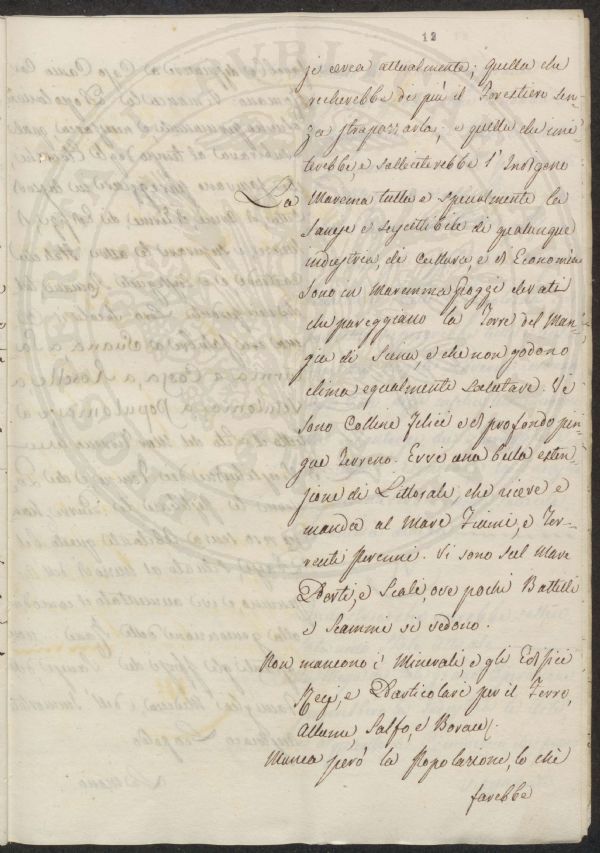 12
ze circa attualmente; quella che
recherebbe di più il Forestiere sen-
za strapazzarla; e quella che invi-
terebbe e solleciterebbe l'Indigeno
La Maremma tutta e specialmente la
Sanese è suscettibile di qualunque
industria, di Cultura, e di Economia
sono in Maremma poggi elevati
che pareggiano la Torre del Man-
gia di Siena, e che non godono
clima egualmente salutare. Vi
sono Colline felici e di profondo pin-
gue terreno. Evvi una bella esten-
zione di Littorale, che riceve e
manda al Mare Fiumi, e Tor-
renti perenni. Vi sono sul Mare
Porti, e Scali, ove pochi Battelli
e Scammi si vedono.
Non mancono i Minerali, e gli Edifici
Regj, e Particolari per il Ferro,
Allume, Solfo, e Borace.
Manca però la Popolazione, lo che
farebbe